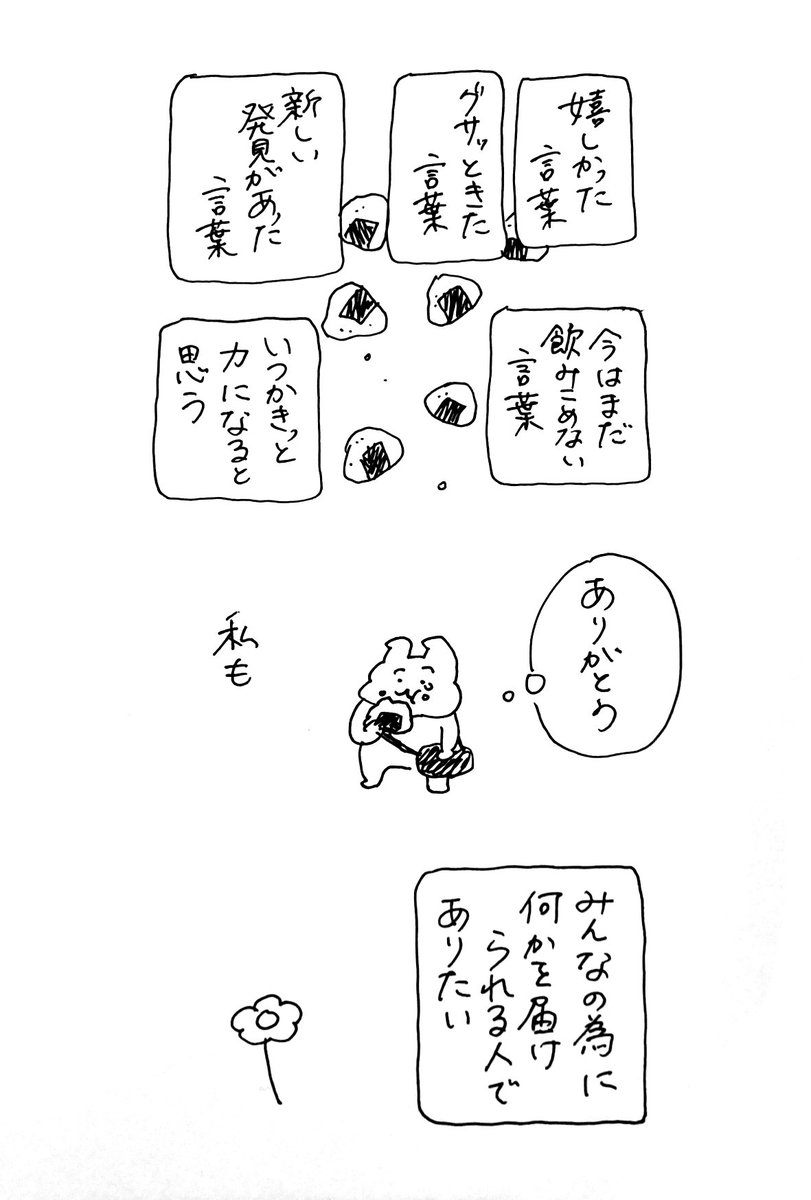 嬉しかった
言葉
グサッときた
言葉
新しい
発見があった
言葉
今はまだ
飲みこめない
言葉
いつかきっと
力になると
思う
ありがとう
私も
みんなの為に
何かを届け
られる人で
ありたい